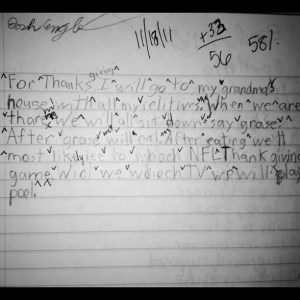 11/18/11 +33 58%
56
giving
For Thanks I will go to my grandma's
house with all my relitives. When we are
thare we will all sit down say grase.
After grase will eat. After eating we'll
most likely to whoch NFL Thank giving
game. Wial we whoch TV we will play
pool.